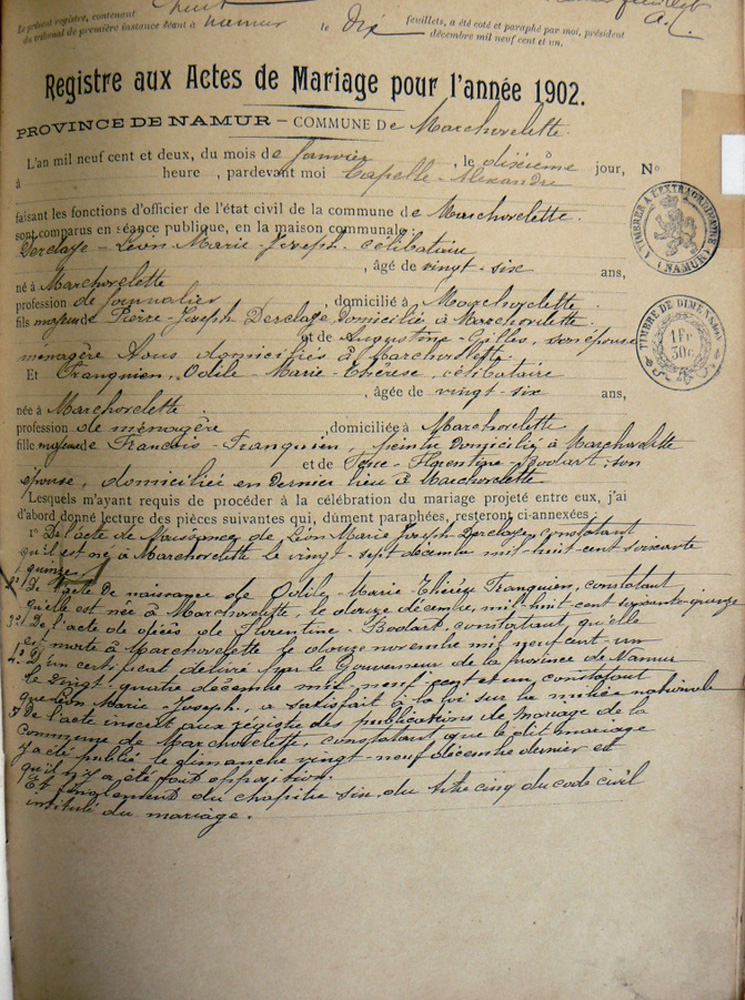 Le présent registre, contenant huit feuillets, a été coté et paraphé par moi, président
du tribunal de première instance séant à Namur le dix décembre mil neuf cent et un.
Registre aux Actes de Mariage pour l'année 1902.
PROVINCE DE NAMUR – COMMUNE De Marchovelette.
L'an mil neuf cent et deux, du mois de Janvier, le dixième jour, N°
à heure, pardevant moi Capelle - Alexandre
faisant les fonctions d'officier de l'état civil de la commune de Marchovelette.
sont comparus en séance publique, en la maison communale:
Derclaye - Léon - Marie - Joseph - célibataire
, âgé de vingt - six ans,
né à Marchovelette
profession de journalier, domicilié à Marchovelette.
fils majeur de Pierre - Joseph Derclaye, domicilié à Marchovelette.
et de Augustine - Gilles, son épouse
ménagère tous domiciliés à Marchovelette.
Et Franquien, Odile - Marie - Thérèse, célibataire
, âgée de vingt - six ans,
née à Marchovelette.
profession de ménagère, domiciliée à Marchovelette
fille majeure de François - Franquien, peintre domicilié à Marchovelette
et de Florentine Bodart, son
épouse, domiciliée en dernier lieu à Marchovelette
Lesquels m'ayant requis de procéder à la célébration du mariage projeté entre eux, j'ai
d'abord donné lecture des pièces suivantes qui, dûment paraphées, resteront ci-annexées:
1° De l'acte de Naissance de Léon Marie Joseph Derclaye, constatant
qu'il est né à Marchovelette le vingt - sept décembre mil - huit - cent soixante
quinze
2° De l'acte de naissance de Odile - Marie Thérèse Franquien, constatant
qu'elle est née à Marchovelette, le douze décembre, mil - huit cent soixante - quinze
3° De l'acte de décès de Florentine - Bodart, constatant, qu'elle
est morte à Marchovelette le douze novembre mil neuf cent - un
4° D'un certificat délivré par le Gouverneur de la province de Namur
le vingt - quatre décembre mil neuf cent et un, constatant
que Léon Marie - Joseph, a satisfait à la loi sur la milice nationale
5 De l'acte inscrit aux régistre des publications de mariage de la
Commune de Marchovelette, constatant que le dit mariage
y a été publié le dimanche vingt - neuf décembre dernier et
qu'il n'y a été fait opposition.
Et du chapitre six, du titre cinq du code civil
intitulé du mariage.
TIMBRE A L'EXTRAORDINAIRE
(NAMUR)
TIMBRE DE DIMENSION
1 Fr
30c